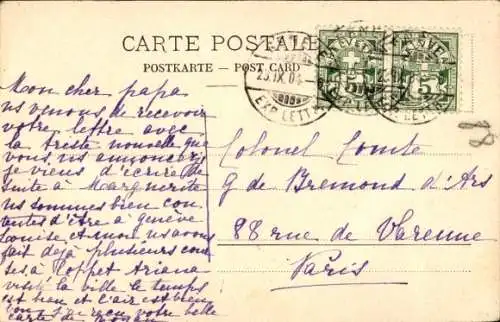 CARTE POSTALE
POSTKARTE — POST CARD
GENÈVE
23.IX.04
EXP. LETT.
5 5
Mon cher papa
nous venons de recevoir
votre lettre avec
la triste nouvelle que
vous nous annoncez
je viens d'écrire de
suite à Marguerite
nous sommes bien con-
tentes d'être à genève
Louise et moi nous avons
fait déjà plusieurs cour
ses à Coppet Ariana
visité la ville le temps
est bien et l'air est bien
bon reçu votre belle
carte de
Colonel Comte
G de Bremond d'Ars
88 rue de Varenne
Paris